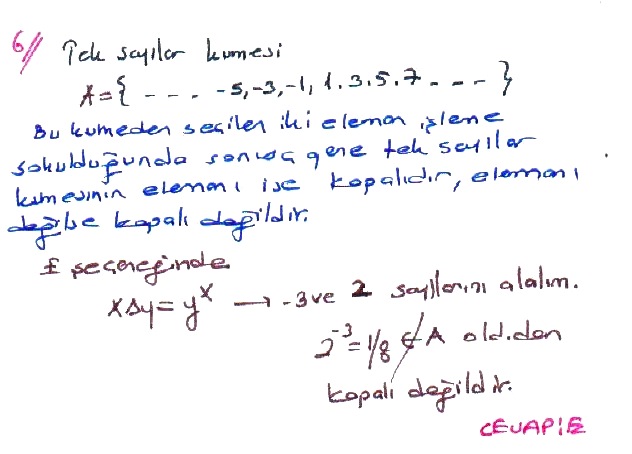 6// Tek sayılar kumesi
A={ - - - . -5,-3,-1, 1.3.5.7. - . - }
Bu kumeden seçilen iki eleman işleme
sokulduğunda sonuç gene tek sayılar
kumesinin elemanı ise kapalıdır, elemanı
değilse kapalı değildir.
E seçeneğinde
x∆y= y^x → -3 ve 2 sayılarını alalım.
2^-3 = 1/8 ∉ A old.dan
kapalı değildir.
CEVAP:E